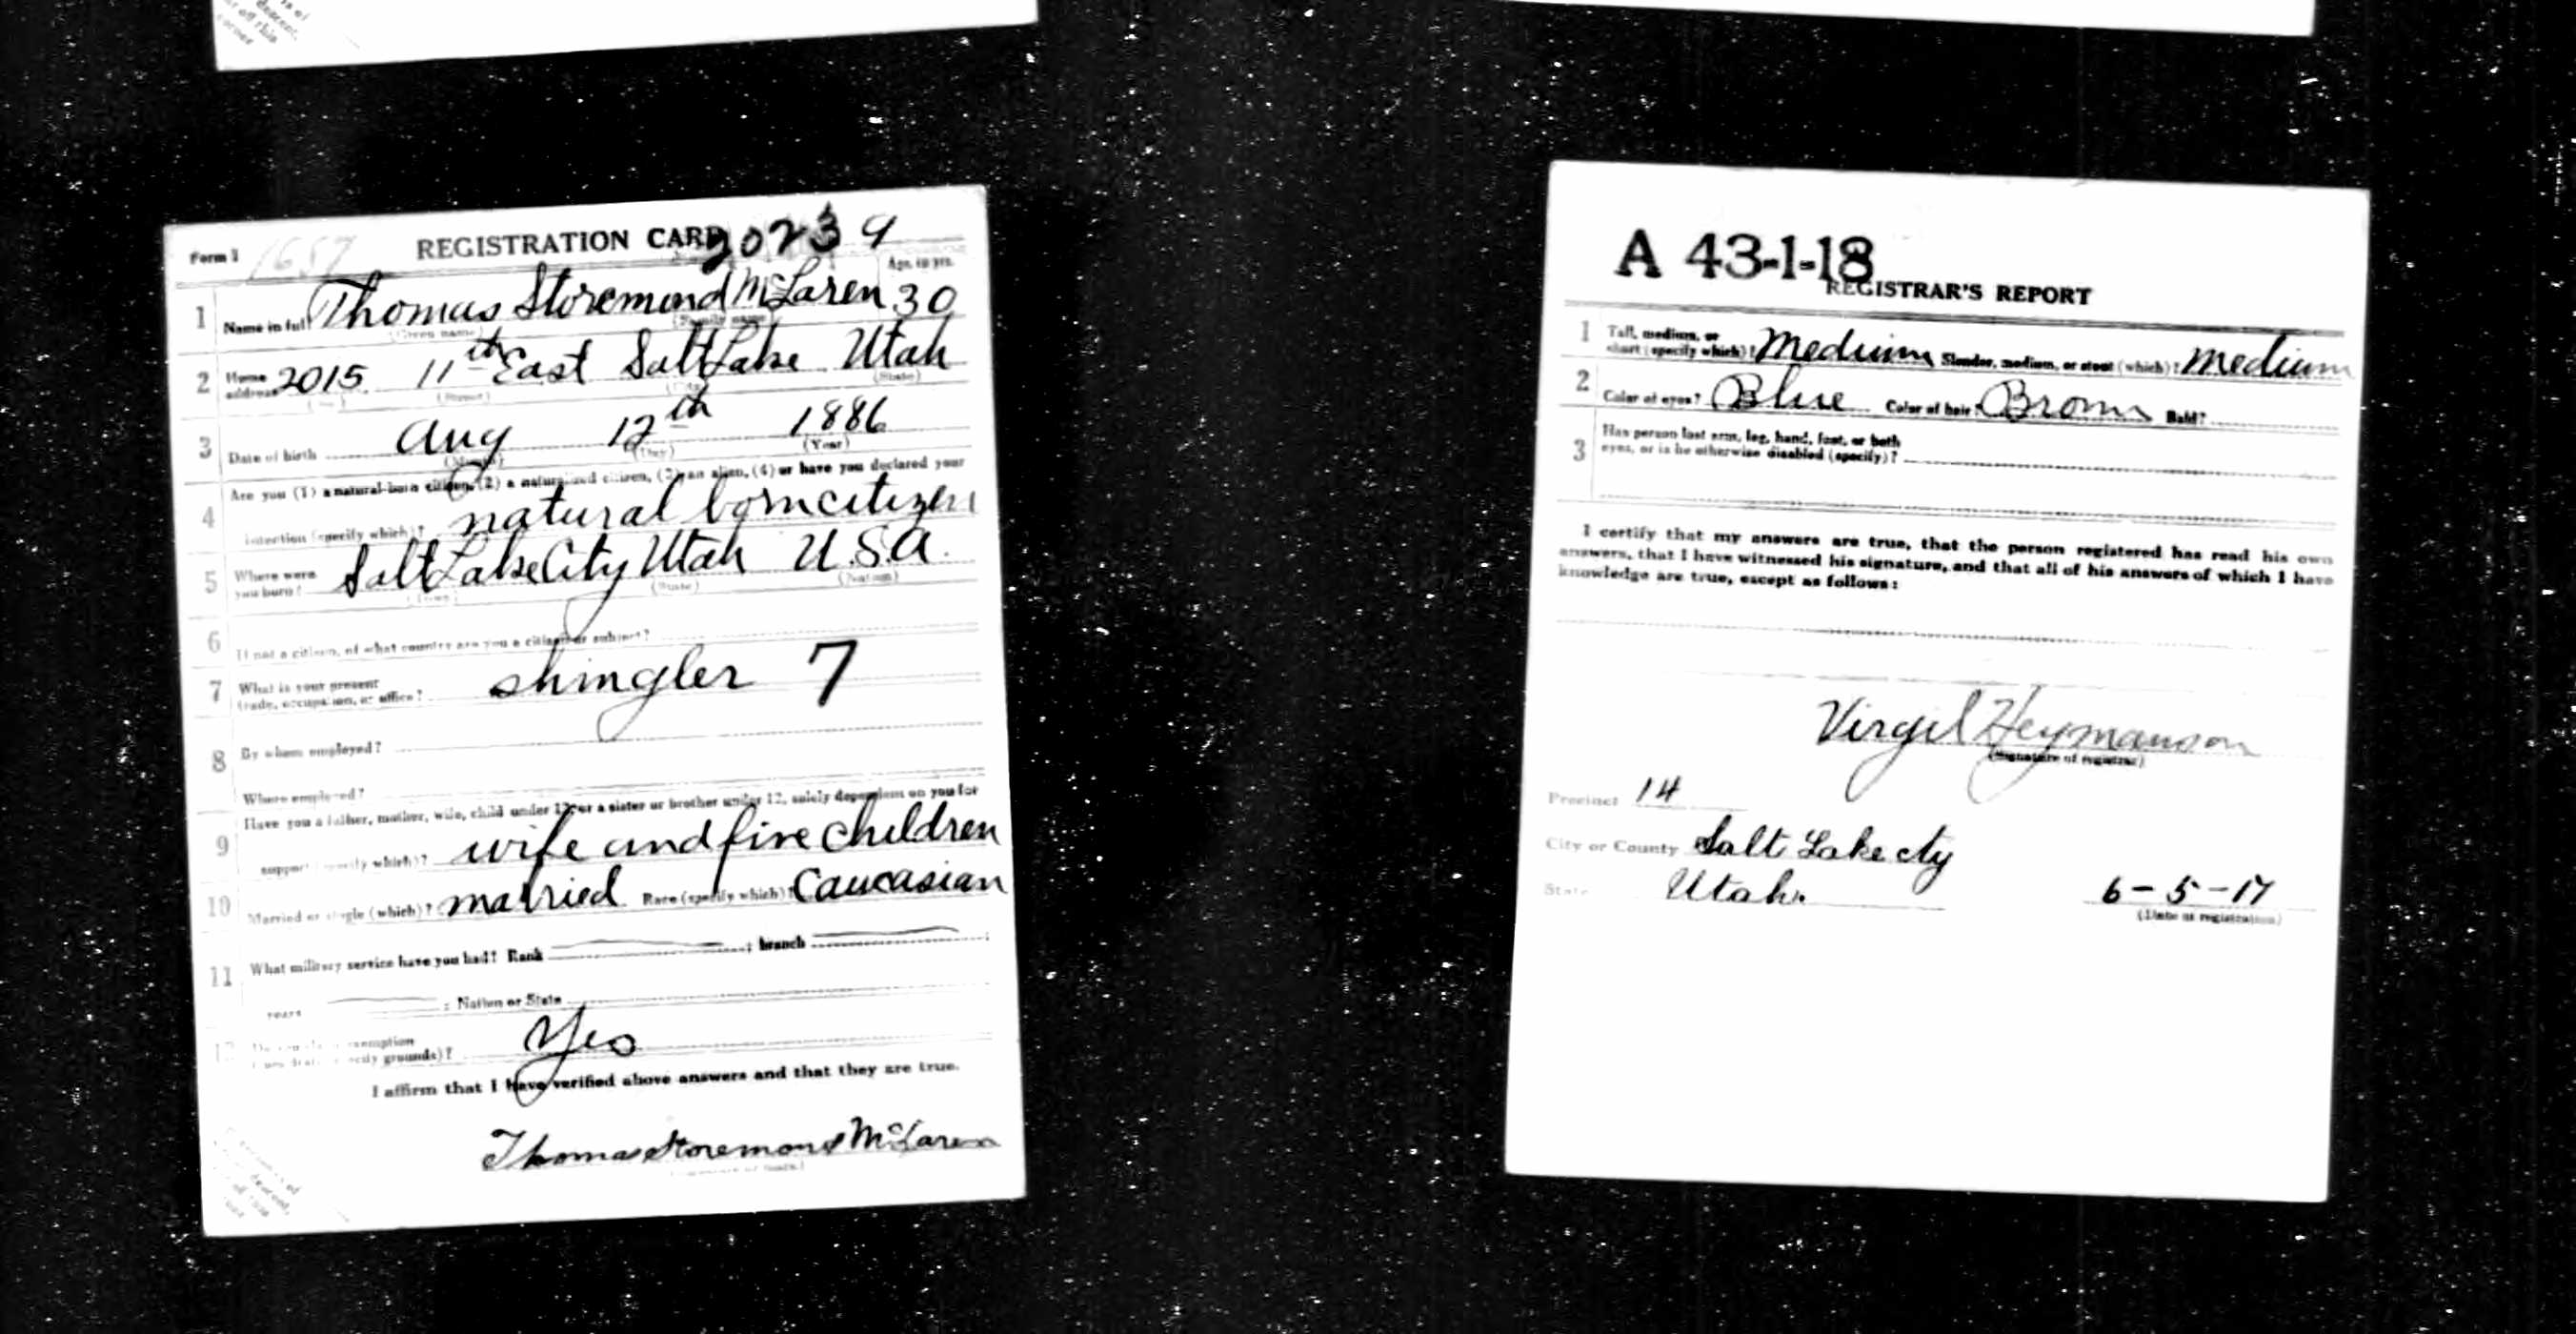 Form 1 1687 REGISTRATION CARD 20239
Age, in yrs.
1 Name in full Thomas Storemond McLaren 30
(Given name) (Family name)
2 Home address 2015 11th East Salt Lake Utah
(No.) (Street) (City) (State)
3 Date of birth Aug 12th 1886
(Month) (Day) (Year)
Are you (1) a natural-born citizen, (2) a naturalized citizen, (3) an alien, (4) or have you declared your
4 intention (specify which)? natural born citizen
5 Where were you born? Salt Lake City Utah U.S.A.
(Town) (State) (Nation)
6 If not a citizen, of what country are you a citizen or subject?
7 What is your present
trade, occupation, or office? shingler 7
8 By whom employed?
Where employed?
Have you a father, mother, wife, child under 12, or a sister or brother under 12, solely dependent on you for
9 support (specify which)? wife and five children
10 Married or single (which)? married Race (specify which)? Caucasian
11 What military service have you had? Rank ; branch ;
years ; Nation or State
12 exemption
(specify grounds)? Yes
I affirm that I have verified above answers and that they are true.
Thomas Storemond McLaren
A 43-1-18
REGISTRAR'S REPORT
1 Tall, medium, or
short (specify which)? Medium Slender, medium, or stout (which)? Medium
2 Color of eyes? Blue Color of hair? Brown Bald?
3 Has person lost arm, leg, hand, foot, or both
eyes, or is he otherwise disabled (specify)?
I certify that my answers are true, that the person registered has read his own
answers, that I have witnessed his signature, and that all of his answers of which I have
knowledge are true, except as follows:
Virgil Heymanson
(Signature of registrar)
Precinct 14
City or County Salt Lake cty
State Utah. 6-5-17
(Date of registration)